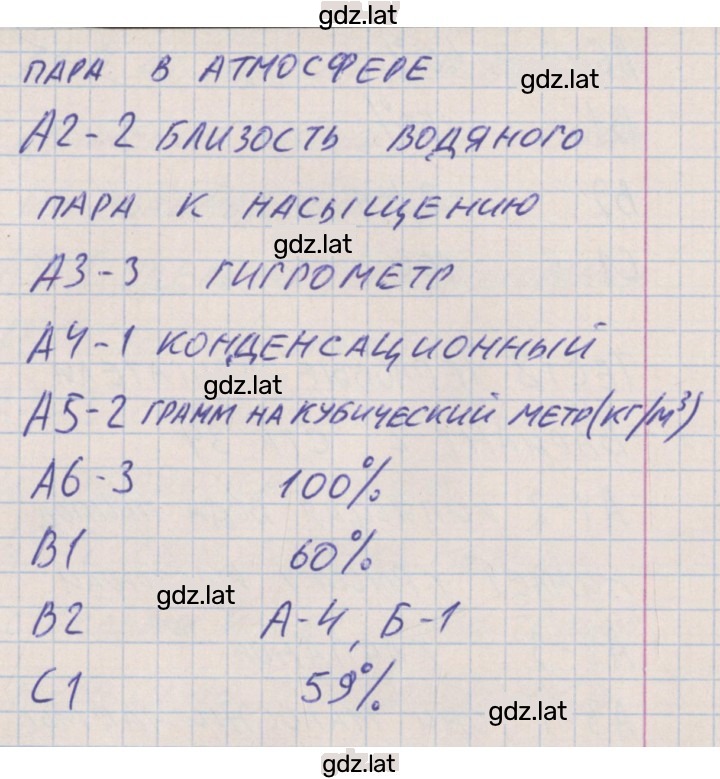 gdz.lat
ПАРА В АТМОСФЕРЕ
gdz.lat
А2-2 БЛИЗОСТЬ ВОДЯНОГО
ПАРА К НАСЫЩЕНИЮ
gdz.lat
А3-3 ГИГРОМЕТР
А4-1 КОНДЕНСАЦИОННЫЙ
gdz.lat
А5-2 ГРАММ НА КУБИЧЕСКИЙ МЕТР(КГ/М³)
А6-3 100%
В1 60%
gdz.lat
В2 А-4, Б-1
С1 59%
gdz.lat
gdz.lat